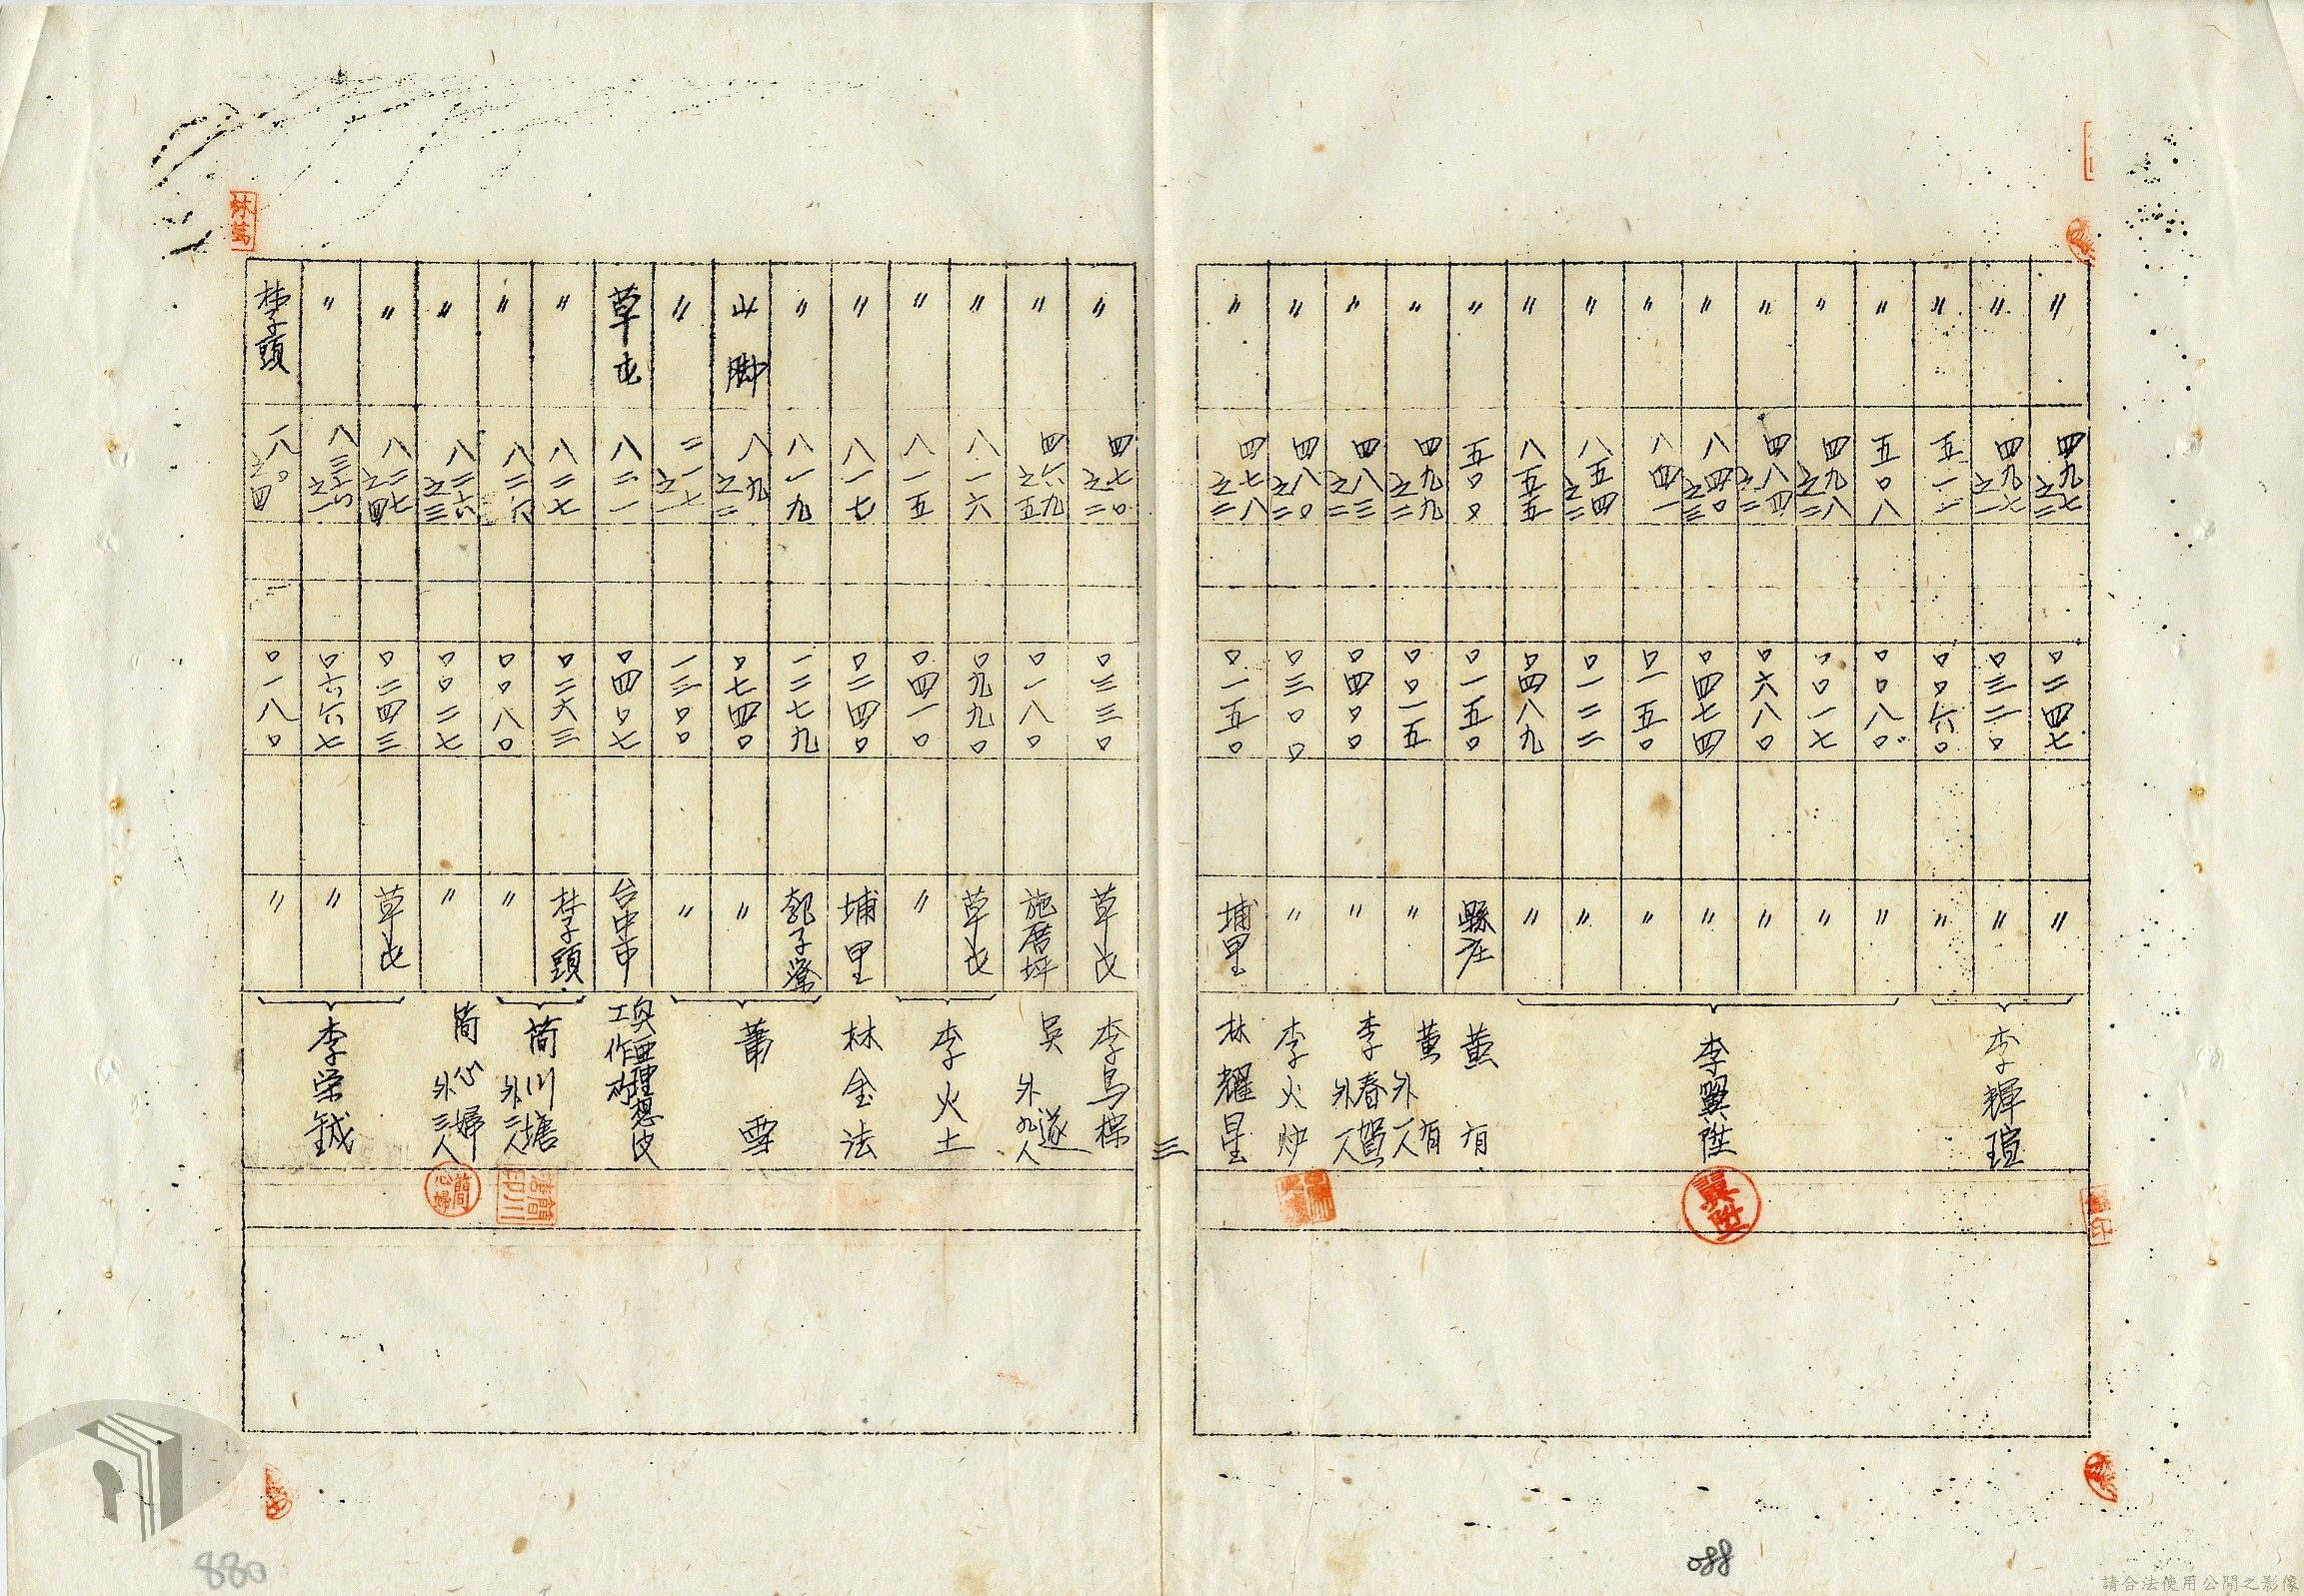 〃 四九七之二 〇二四七 〃
〃 四九七之一 〇三二〇 〃 李輝瑄
〃 五一二 〇〇六〇 〃
〃 五〇八 〇〇八〇 〃
〃 四九八之二 〇〇一七 〃
〃 四八四之二 〇六八〇 〃
〃 八四〇之三 〇四七四 〃 李翼陞
〃 八四一 〇一五〇 〃
〃 八五四之二 〇一二二 〃
〃 八五五 〇四八九 〃
〃 五〇〇 〇一五〇 縣庄 黄有
〃 四九九之二 〇〇一五 〃 黄有外一人
〃 四八三之二 〇四〇〇 〃 李春鴛外一人
〃 四八〇之二 〇三〇〇 〃 李火炉
〃 四七八之二 〇一五〇 埔里 林耀星
三
〃 四七〇之二 〇三三〇 草屯 李烏棕
〃 四六九之五 〇一八〇 施厝坪 吳遂外九人
〃 八一六 〇九九〇 草屯 李火土
〃 八一五 〇四一〇 〃
〃 八一七 〇二四〇 埔里 林金法
〃 八一九 一二七九 郭子奩
山脚 八九之二 〇七四〇 〃 萧雪
〃 二一七之一 一三〇〇 〃
草屯 八二一 〇四〇七 台中市
〃 八二七 〇二六三 李子頭 簡川塘外二人
〃 八二六 〇〇八〇 〃
〃 八二六之三 〇〇二七 〃 簡心婦外三人
〃 八二七之四 〇二四三 草屯
〃 八三六之一 〇六六七 〃 李栄鋮
李子頭 一八〇之四 〇一八〇 〃
翼陞
簡川塘印
簡心婦
林萬
088
880
請合法使用公開之影像